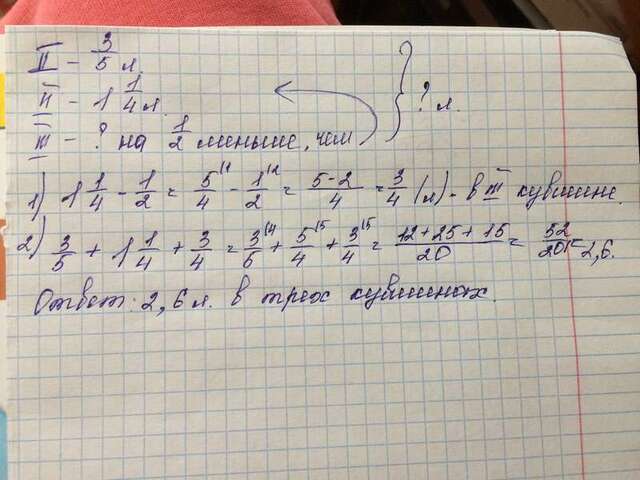 I - 3/5 л
II - 1 1/4 л.
III - ? на 1/2 меньше, чем } ? л.
1) 1 1/4 - 1/2 = 5/4 - 1/2 = 5-2/4 = 3/4 (л) - в III кувшине.
2) 3/5 + 1 1/4 + 3/4 = 3/5 + 5/4 + 3/4 = 12+25+15/20 = 52/20 = 2,6.
Ответ: 2,6 л. в трех кувшинах.